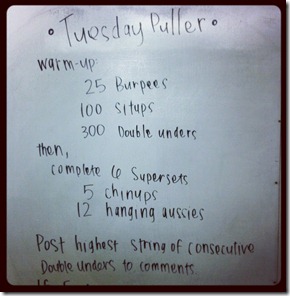 • Tuesday Puller •
warm-up:
25 Burpees
100 situps
300 Double unders
then,
complete 6 supersets
5 chinups
12 hanging aussies
Post highest string of consecutive
Double unders to comments